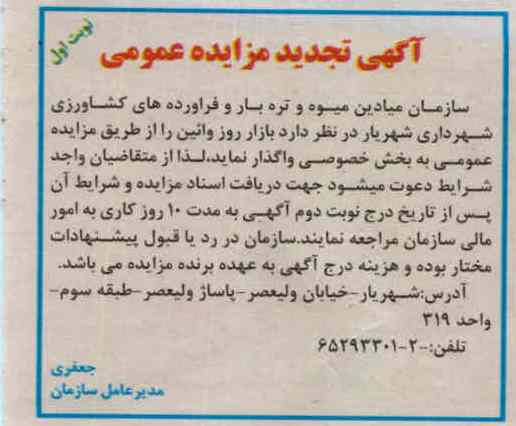 نوبت اول
آگهی تجدید مزایده عمومی
سازمان میادین میوه و تره بار و فراورده های کشاورزی
شهرداری شهریار در نظر دارد بازار روز وائین را از طریق مزایده
عمومی به بخش خصوصی واگذار نماید،لذا از متقاضیان واجد
شرایط دعوت میشود جهت دریافت اسناد مزایده و شرایط آن
پس از تاریخ درج نوبت دوم آگهی به مدت ۱۰ روز کاری به امور
مالی سازمان مراجعه نمایند.سازمان در رد یا قبول پیشنهادات
مختار بوده و هزینه درج آگهی به عهده برنده مزایده می باشد.
آدرس:شهریار-خیابان ولیعصر-پاساژ ولیعصر-طبقه سوم-
واحد ۳۱۹
تلفن:-۲-۶۵۲۹۳۳۰۱
جعفری
مدیرعامل سازمان